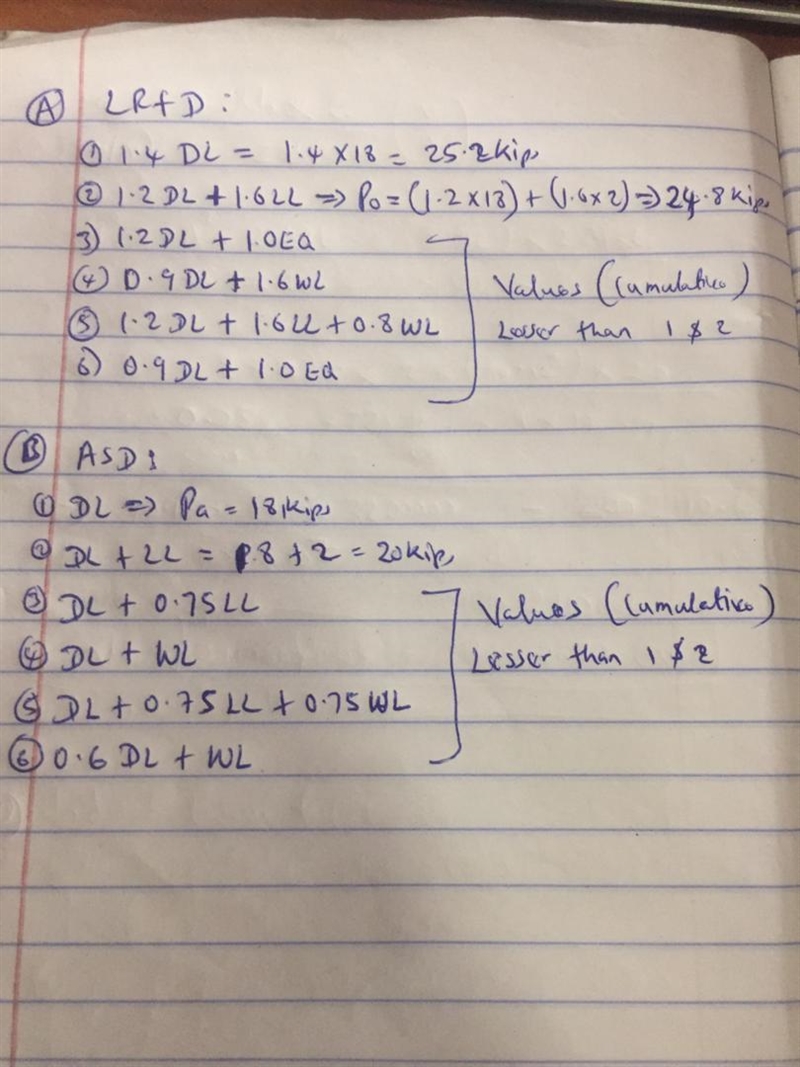 Ⓐ LRFD :
① 1.4 DL = 1.4 x 18 = 25.2 kips
② 1.2 DL + 1.6 LL => Po = (1.2 x 18) + (1.6 x 2) => 24.8 kips
3) 1.2 DL + 1.0 EQ
④ 0.9 DL + 1.6 WL
⑤ 1.2 DL + 1.6 LL + 0.8 WL
6) 0.9 DL + 1.0 EQ
Values (Cumulative)
Lesser than 1 & 2
Ⓑ ASD :
① DL => Pa = 18 kips
② DL + LL = 18 + 2 = 20 kips
③ DL + 0.75 LL
④ DL + WL
⑤ DL + 0.75 LL + 0.75 WL
⑥ 0.6 DL + WL
Values (Cumulative)
Lesser than 1 & 2